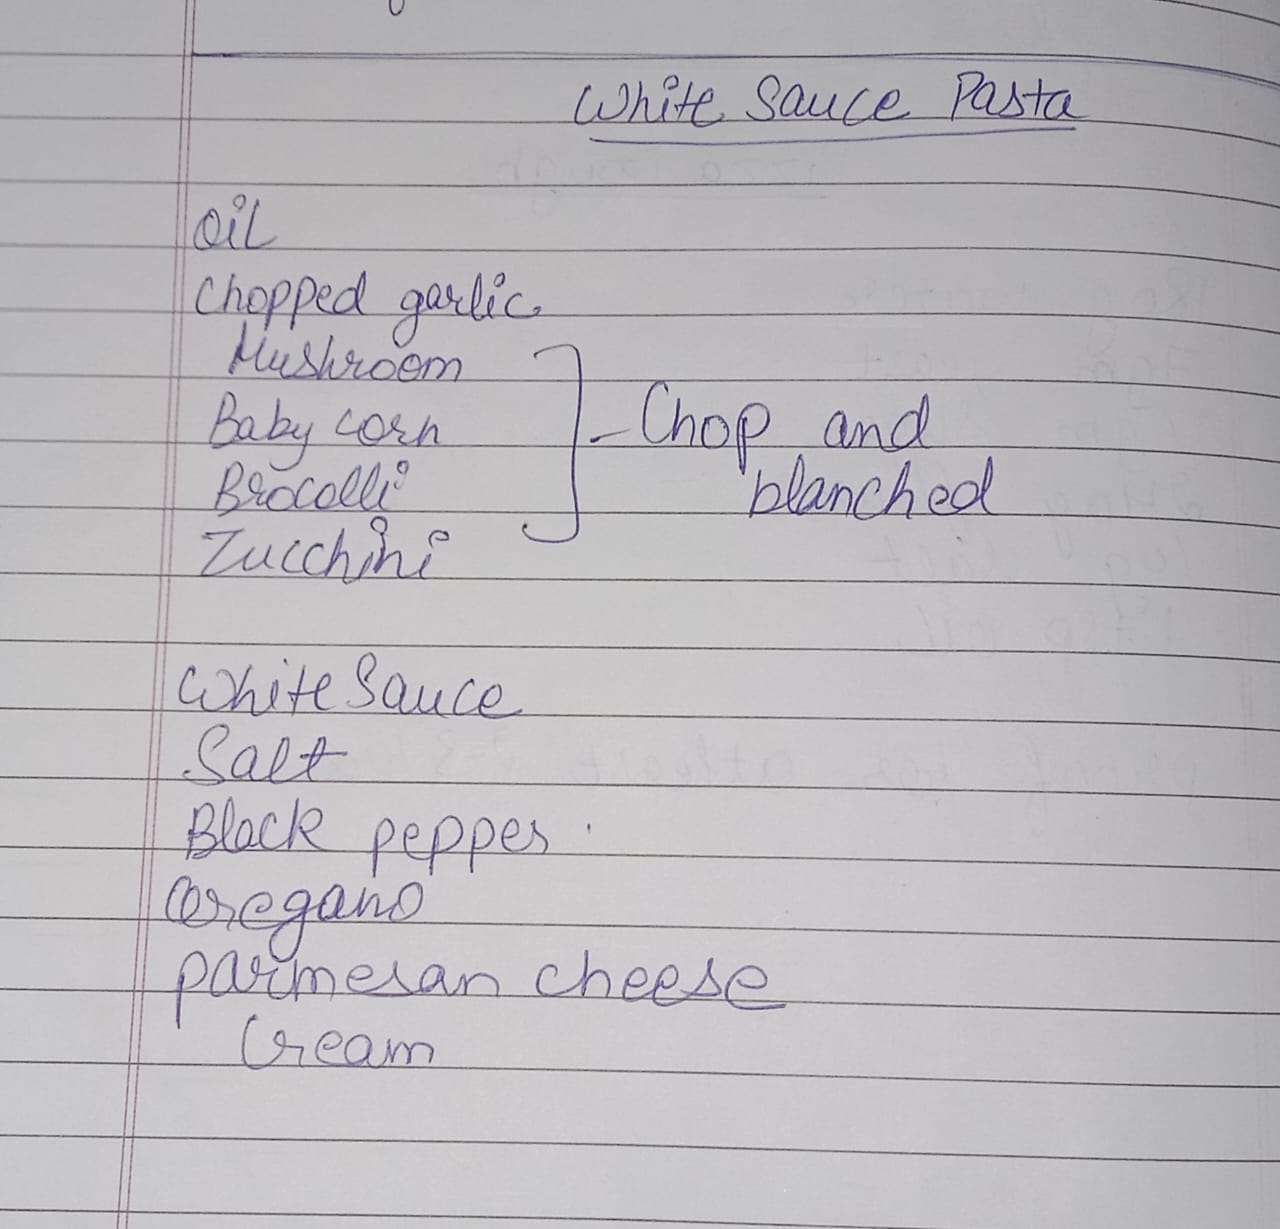 White Sauce Pasta
Oil
Chopped garlic
Mushroom
Baby corn
Brocolli
Zucchini
- Chop and
blanched
White Sauce
Salt
Black pepper
Oregano
Parmesan cheese
Cream